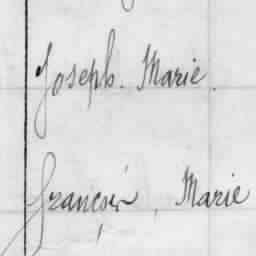 Joseph. Marie.
François, Marie